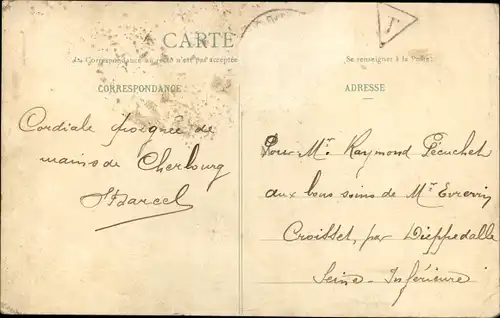 CARTE
La Correspondance au recto n'est pas acceptée
Se renseigner à la Poste
CORRESPONDANCE
ADRESSE
T
Cordiale poignée de
mains de Cherbourg
Marcel
Pour Mr. Raymond Pécuchet
aux bons soins de Mr
Croisset, par Dieppedalle
Seine-Inférieure